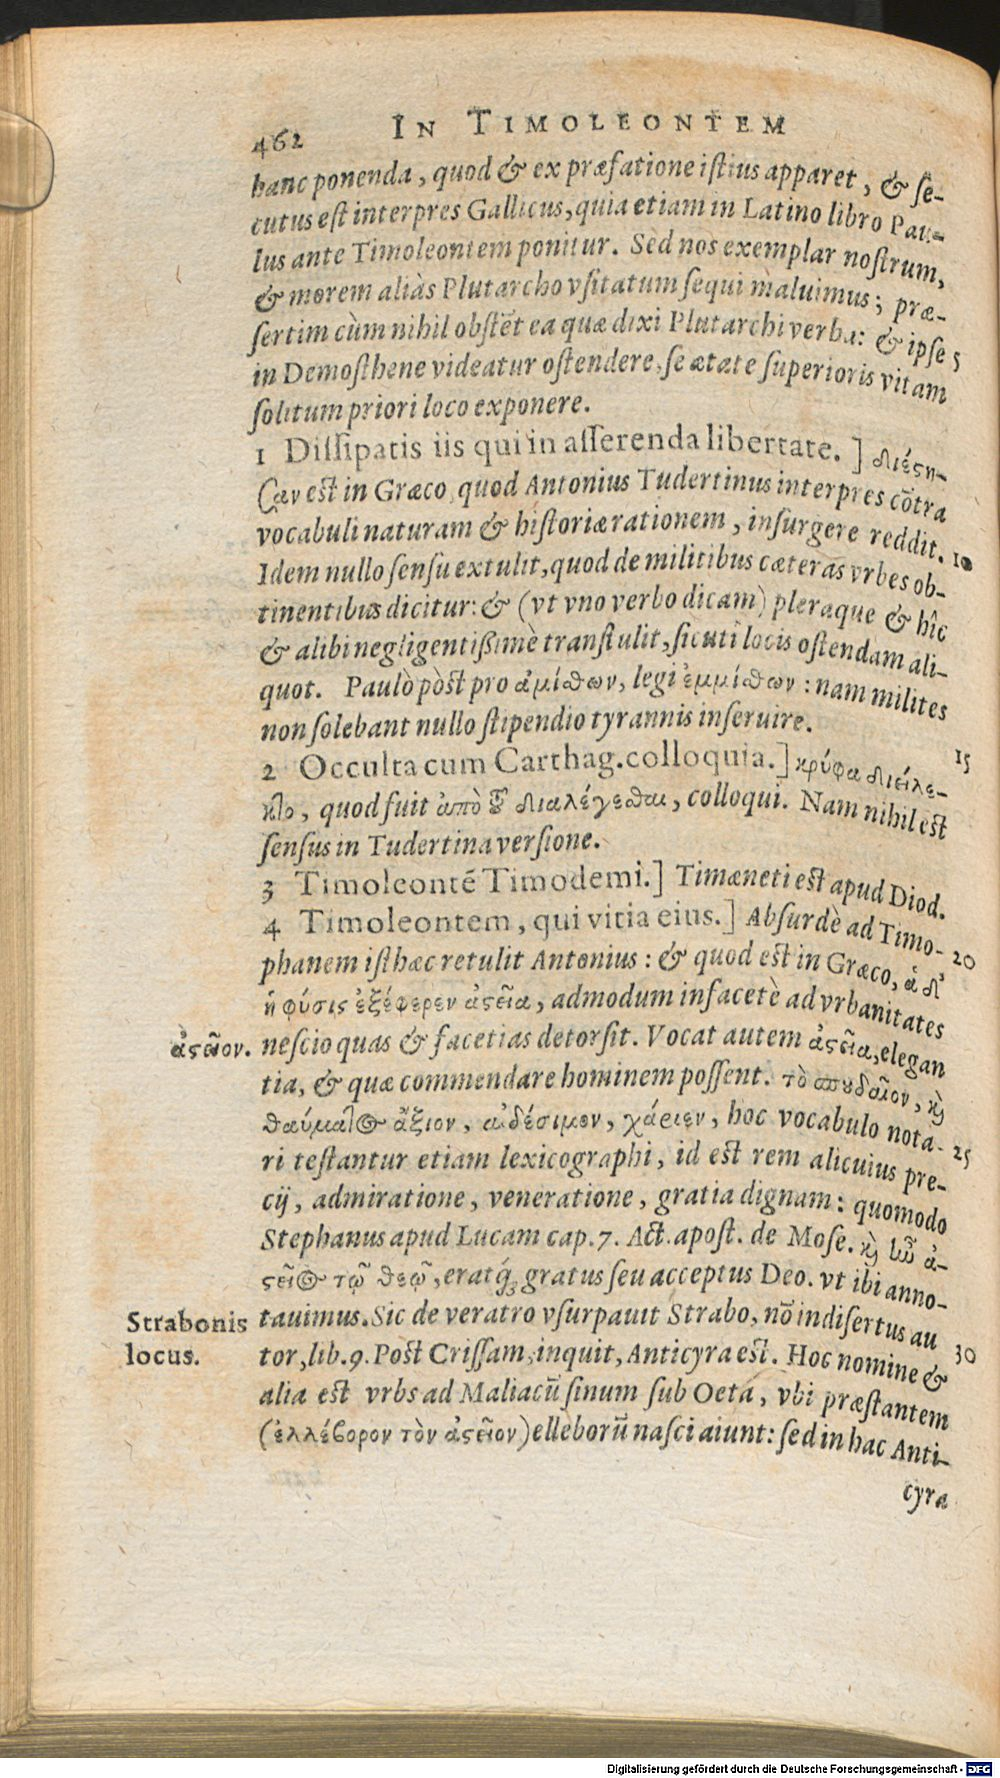 462 IN TIMOLEONTEM
hanc ponenda, quod & ex præfatione istius apparet, & se-
cutus est interpres Gallicus, quia etiam in Latino libro Pau-
lus ante Timoleontem ponitur. Sed nos exemplar nostrum,
& morem aliàs Plutarcho vsitatum sequi maluimus; præ-
sertim cùm nihil obstēt ea quæ dixi Plutarchi verba: & ipse 5
in Demosthene videatur ostendere, se ætate superioris vitam
solitum priori loco exponere.
1 Dissipatis iis qui in asserenda libertate.] διέστη-
σαν est in Græco, quod Antonius Tudertinus interpres cōtra
vocabuli naturam & historiæ rationem, insurgere reddit. 10
Idem nullo sensu extulit, quod de militibus cæteras vrbes ob-
tinentibus dicitur: & (vt vno verbo dicam) pleraque & hîc
& alibi negligentißimè transtulit, sicuti locis ostendam ali-
quot. Paulò pòst pro ἀμίσθων, legi ἐμμίσθων: nam milites
non solebant nullo stipendio tyrannis inseruire.
2 Occulta cum Carthag. colloquia.] κρύφα διείλε- 15
κτο, quod fuit ἀπὸ τοῦ διαλέγεσθαι, colloqui. Nam nihil est
sensus in Tudertina versione.
3 Timoleontē Timodemi.] Timæneti est apud Diod.
4 Timoleontem, qui vitia eius.] Absurdè ad Timo-
phanem isthæc retulit Antonius: & quod est in Græco, ἃ δ' 20
ἡ φύσις ἐξέφερεν ἀστεῖα, admodum infacetè ad vrbanitates
ἀστεῖον. nescio quas & facetias detorsit. Vocat autem ἀστεῖα, elegan
tia, & quæ commendare hominem possent. τὸ σπουδαῖον, καὶ
θαύματος ἄξιον, αἰδέσιμον, χάριεν, hoc vocabulo nota-
ri testantur etiam lexicographi, id est rem alicuius pre- 25
cij, admiratione, veneratione, gratia dignam: quomodo
Stephanus apud Lucam cap. 7. Act. apost. de Mose. καὶ ἦν ἀ-
στεῖος τῷ θεῷ, eratq́; gratus seu acceptus Deo. vt ibi anno-
Strabonis tauimus. Sic de veratro vsurpauit Strabo, nō indisertus au
locus. tor, lib. 9. Post Crissam, inquit, Anticyra est. Hoc nomine & 30
alia est vrbs ad Maliacū sinum sub Oeta, vbi præstantem
(ἑλλέβορον τὸν ἀστεῖον) elleborū nasci aiunt: sed in hac Anti-
cyra
Digitalisierung gefördert durch die Deutsche Forschungsgemeinschaft - DFG